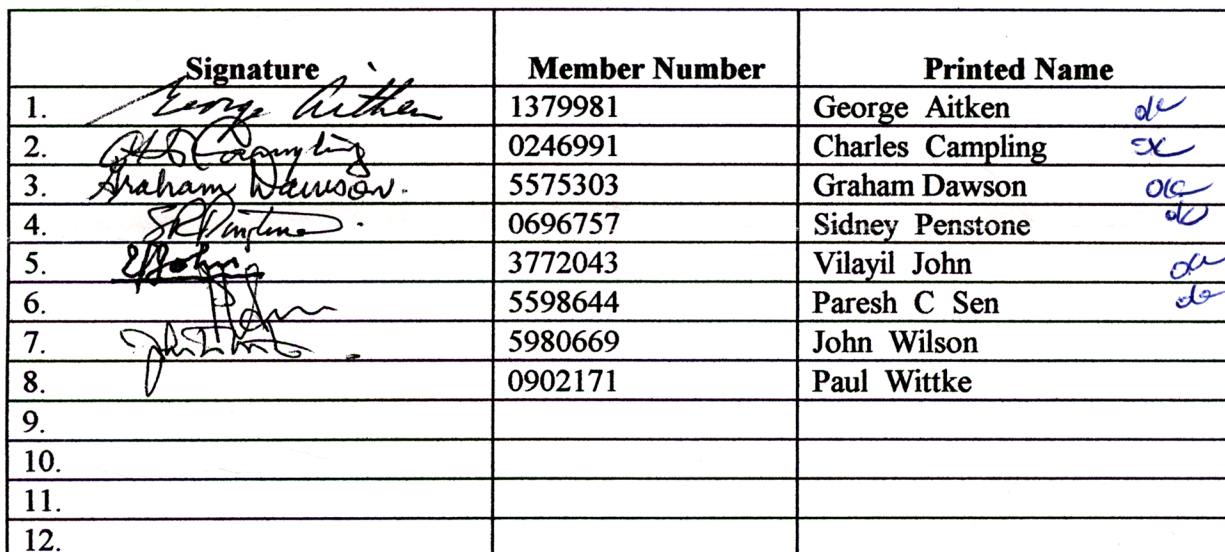 Signature Member Number Printed Name
1. George Aitken 1379981 George Aitken ok
2. Campling 0246991 Charles Campling ok
3. Graham Dawson. 5575303 Graham Dawson ok
4. SR Penstone. 0696757 Sidney Penstone ok
5. VJohn 3772043 Vilayil John ok
6. P Sen 5598644 Paresh C Sen ok
7. 5980669 John Wilson
8. 0902171 Paul Wittke
9.
10.
11.
12.